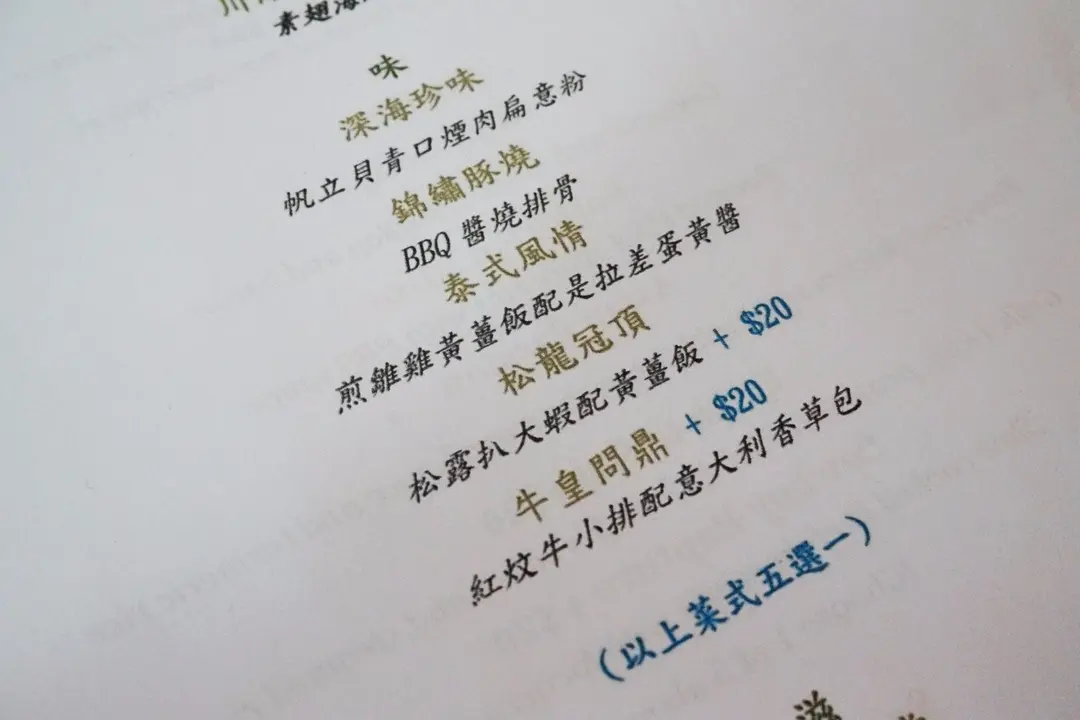 素翅海
味
深海珍味
帆立貝青口煙肉扁意粉
錦繡豚燒
BBQ 醬燒排骨
泰式風情
煎雛雞黃薑飯配是拉差蛋黃醬
松龍冠頂
松露扒大蝦配黃薑飯 + $20
牛皇問鼎 + $20
紅炆牛小排配意大利香草包
(以上菜式五選一)
滋